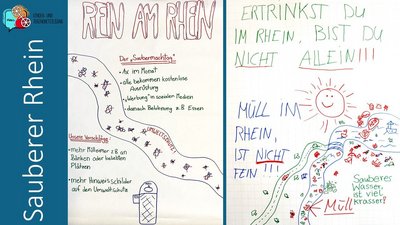 KINDER- UND
JUGENDBETEILIGUNG
Sauberer Rhein
REIN AM RHEIN
Der "Saubermachtag"
• 1x im Monat
• alle bekommen kostenlose
Ausrüstung
• Werbung in sozialen Medien
• danach Belohnung z.B Essen
UMWELTSCHUTZ!
Unsere Vorschläge:
• mehr Mülleimer z.B an
Bänken oder beliebten
Plätzen
• mehr Hinweisschilder
auf den Umweltschutz
ERTRINKST DU
IM RHEIN, BIST DU
NICHT ALLEIN!!!
MÜLL IM
RHEIN,
IST NICHT
FEIN!!!
Sauberes
Wasser,
ist viel
krasser!
Müll